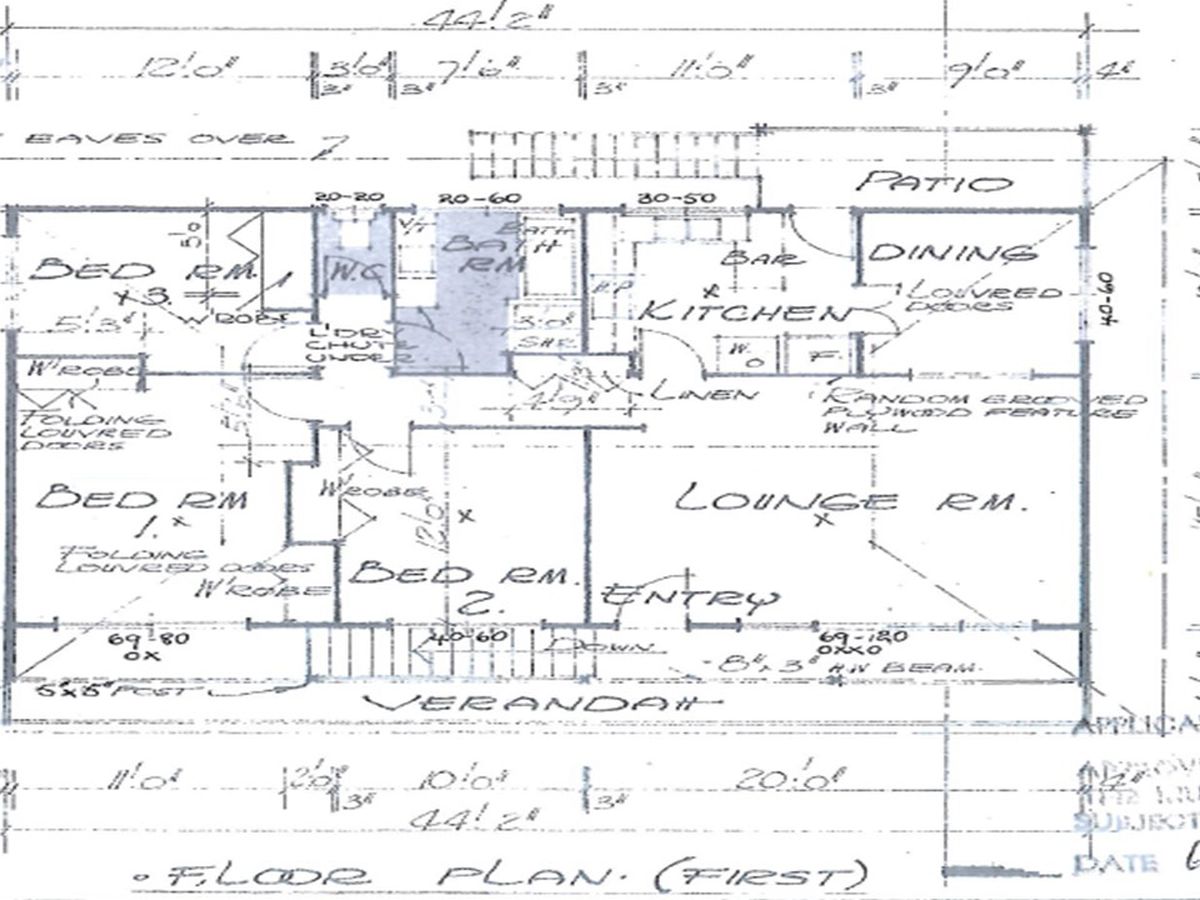 44'2"
12'0" 3'0" 7'6" 11'0" 9'0" 4"
3" 3" 3" 3"
EAVES OVER
PATIO
20-20 20-60 30-50
5'0
BED RM.
3.
W.C
BATH
RM
BATH
BAR
DINING
H.P
KITCHEN
LOUVRED
DOORS
40-60
5'3"
W'ROBE
L'DRY
CHUTE
UNDER
3'0
SHR
W. F.
W'ROBE
LINEN
4'9"
FOLDING
LOUVRED
DOORS
RANDOM GROOVED
PLYWOOD FEATURE
WALL
BED RM
1.
W'ROBE
12'0"
LOUNGE RM.
FOLDING
LOUVRED DOORS
W'ROBE
BED RM.
2.
ENTRY
69-80
OX
40-60
DOWN
69-120
OXXO
8"x3" H.W BEAM.
5"x5" POST
VERANDAH
11'0" 2'0" 10'0" 20'0" 4"
3" 3"
44'2"
SUBJECT
DATE
FLOOR PLAN. (FIRST)